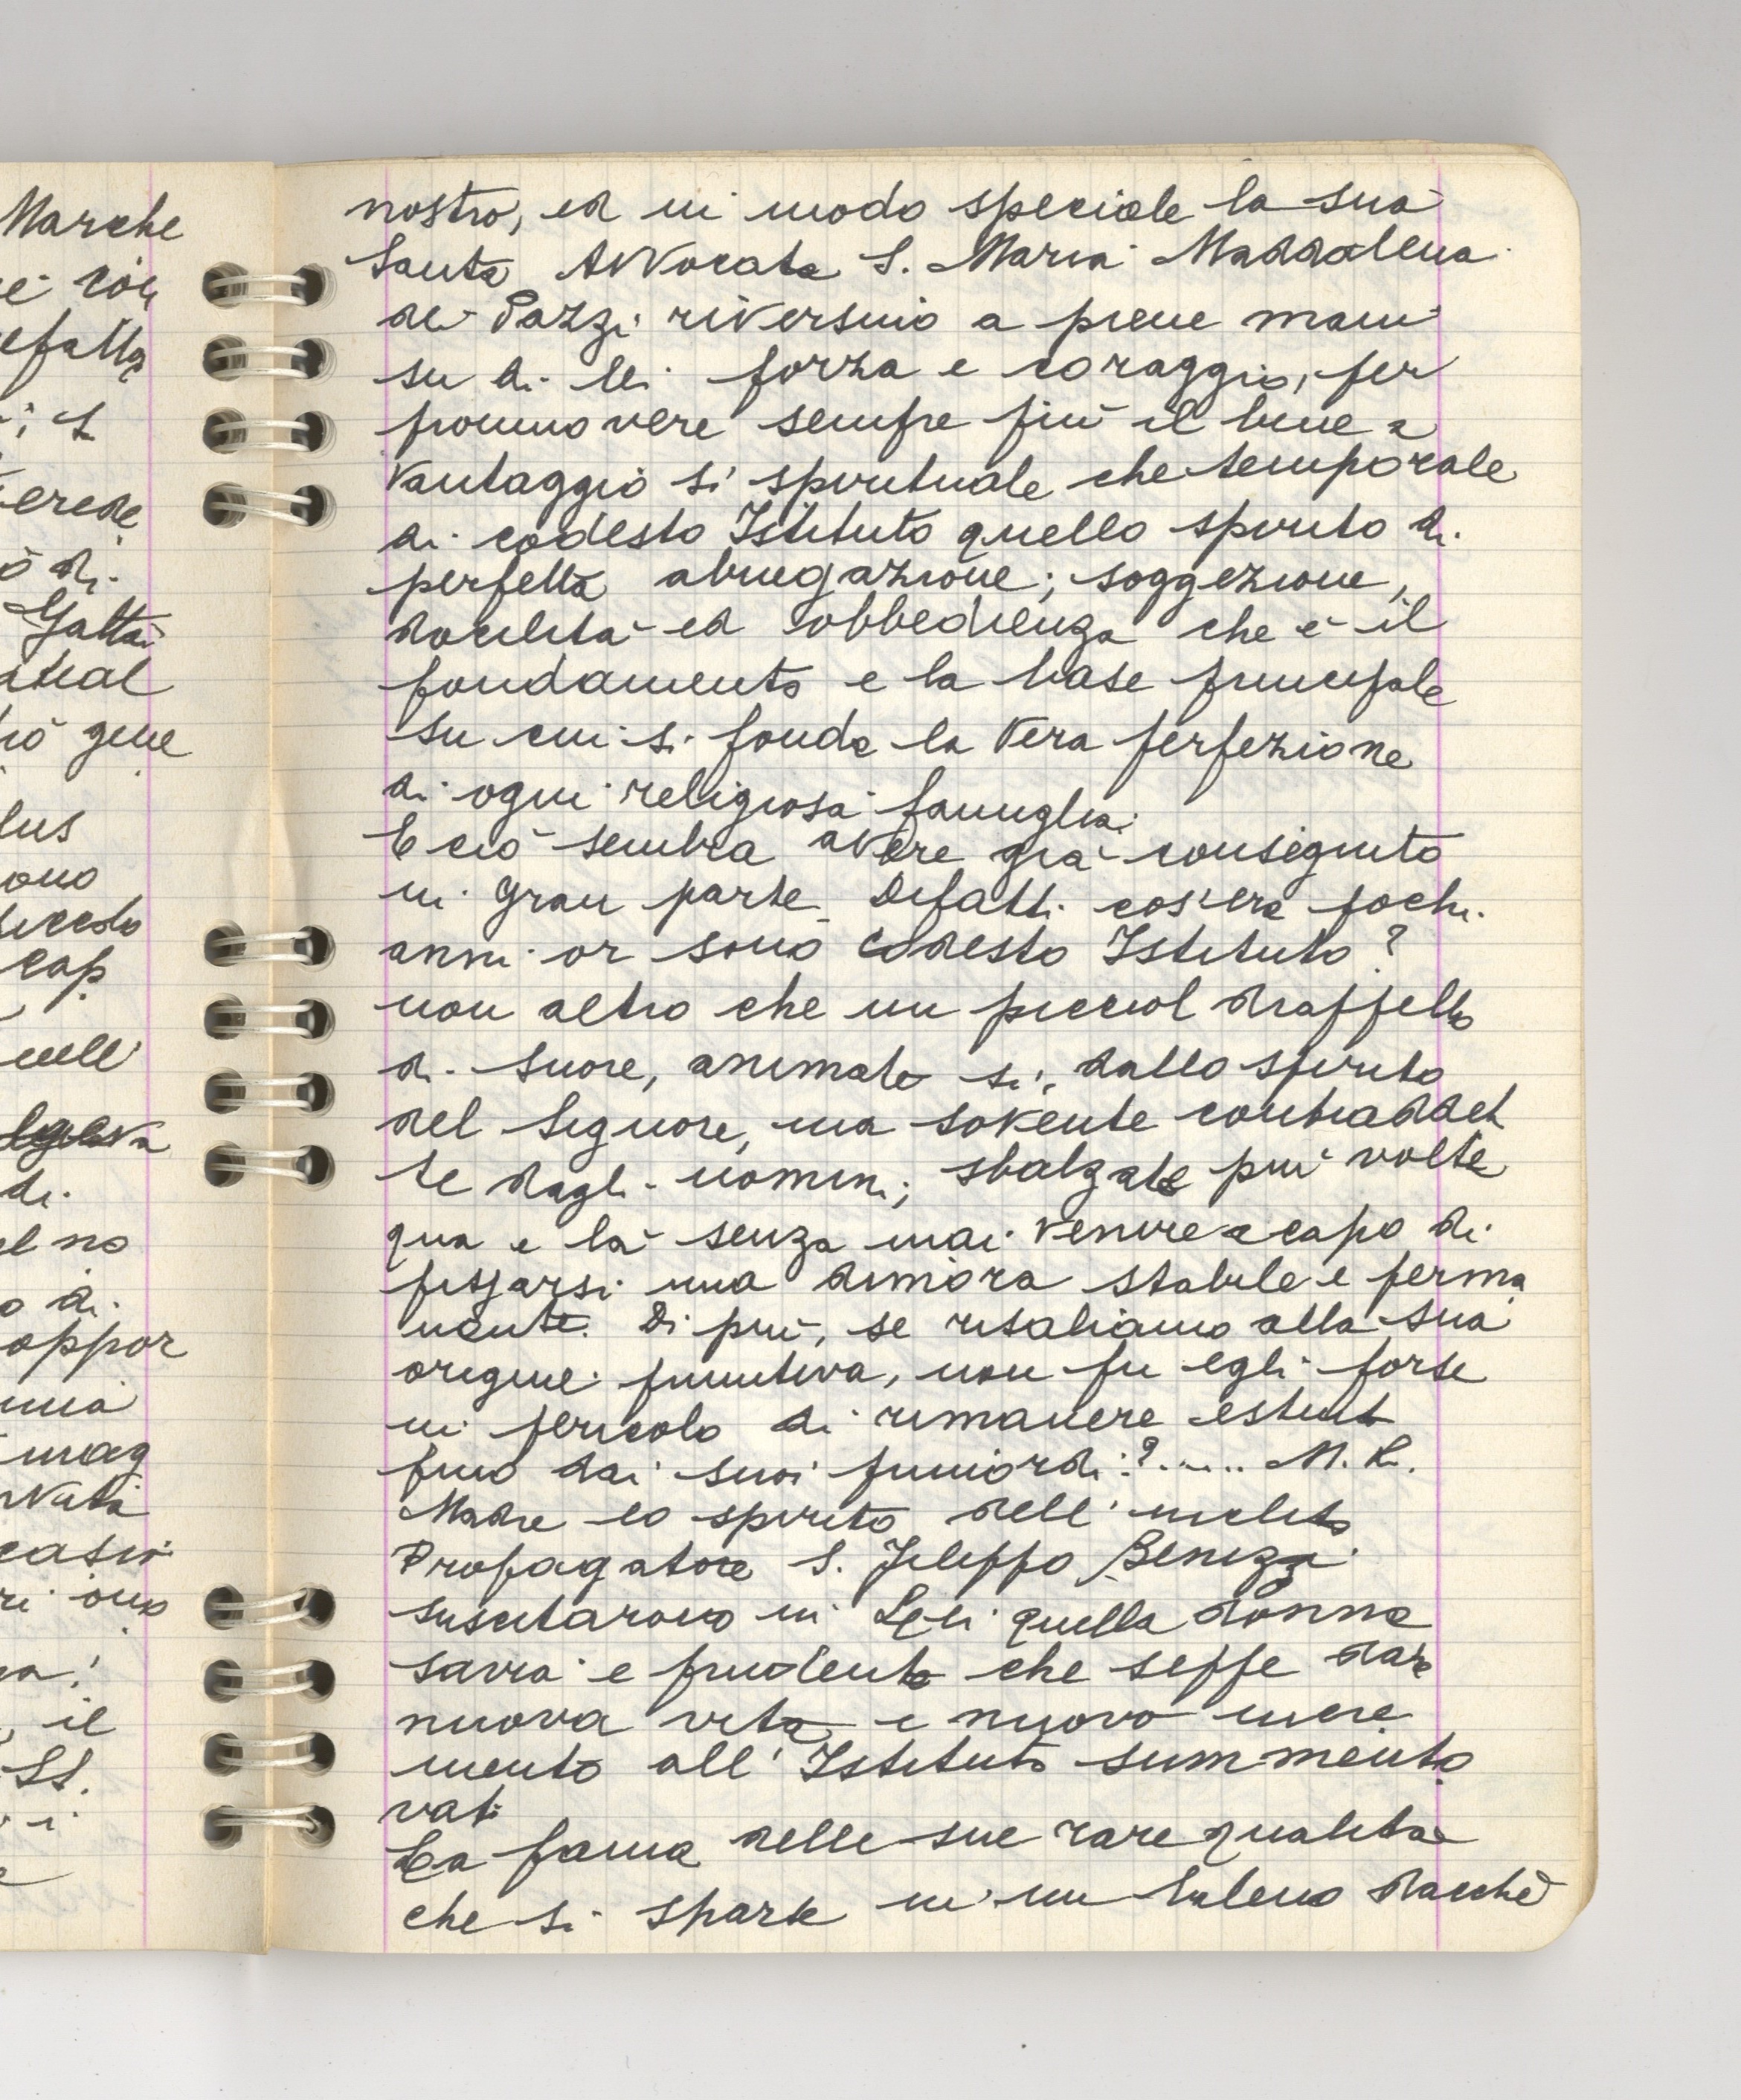 Marche
nostro, ed in modo speciale la sua
Santa Avvocata S. Maria Maddalena
de' Pazzi riversino a piene mani
su di lei forza e coraggio, per
promuovere sempre più il bene e
vantaggio sì spirituale che temporale
di codesto Istituto quello spirito di
perfetta abnegazione; soggezione,
docilità ed obbedienza che è il
fondamento e la base principale
su cui si fonda la vera perfezione
di ogni religiosa famiglia.
E ciò sembra avere già conseguito
in gran parte. Difatti cos'era pochi
anni or sono codesto Istituto?
non altro che un picciol drappello
di Suore, animate sì, dallo spirito
del Signore, ma sovente contraddet
te dagli uomini; sbalzate più volte
qua e là senza mai venire a capo di
fissarsi una dimora stabile e perma
nente. Di più, se risaliamo alla sua
origine primitiva, non fu egli forse
in pericolo di rimanere estinto
fino dai suoi primordi?..... M. R.
Madre lo spirito dell'inclito
Propagatore S. Filippo Benizi
suscitarono in Lei quella donna
savia e prudente che seppe dare
nuova vita e nuovo incre
mento all'Istituto summento
vati
La fama delle sue rare qualità
che si sparse in un baleno dacchè
di
cap
di
oppor
mag
il
SS.